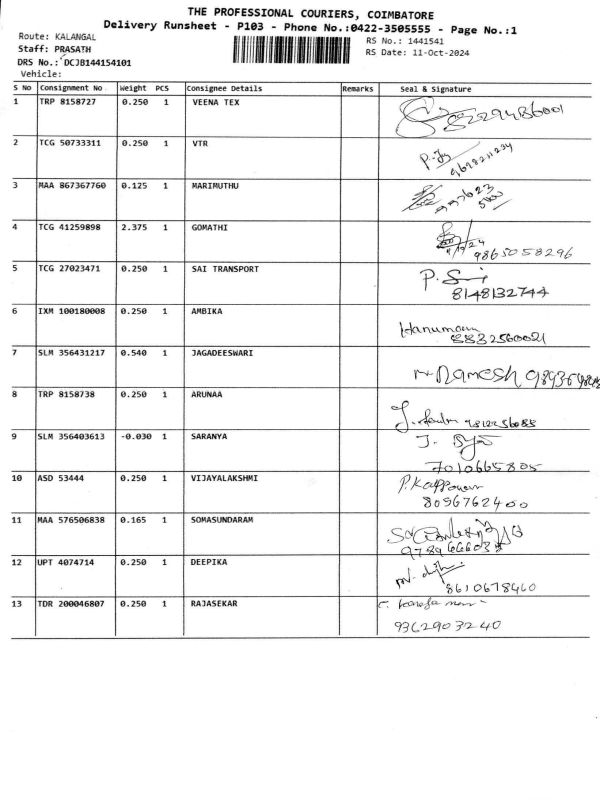 THE PROFESSIONAL COURIERS, COIMBATORE
Delivery Runsheet - P103 - Phone No.:0422-3505555 - Page No.:1
Route: KALANGAL
RS No.: 1441541
Staff: PRASATH
RS Date: 11-Oct-2024
DRS No.: DCJB144154101
Vehicle:
S No Consignment No Weight PCS Consignee Details Remarks Seal & Signature
1 TRP 8158727 0.250 1 VEENA TEX
2 TCG 50733311 0.250 1 VTR
3 MAA 867367760 0.125 1 MARIMUTHU
4 TCG 41259898 2.375 1 GOMATHI
9865058296
5 TCG 27023471 0.250 1 SAI TRANSPORT
8148132744
6 IXM 100180008 0.250 1 AMBIKA
Hanumam
8832560021
7 SLM 356431217 0.540 1 JAGADEESWARI
8 TRP 8158738 0.250 1 ARUNAA
9 SLM 356403613 -0.030 1 SARANYA
7010665805
10 ASD 53444 0.250 1 VIJAYALAKSHMI
8056762400
11 MAA 576506838 0.165 1 SOMASUNDARAM
12 UPT 4074714 0.250 1 DEEPIKA
8610678460
13 TDR 200046807 0.250 1 RAJASEKAR
9362903240